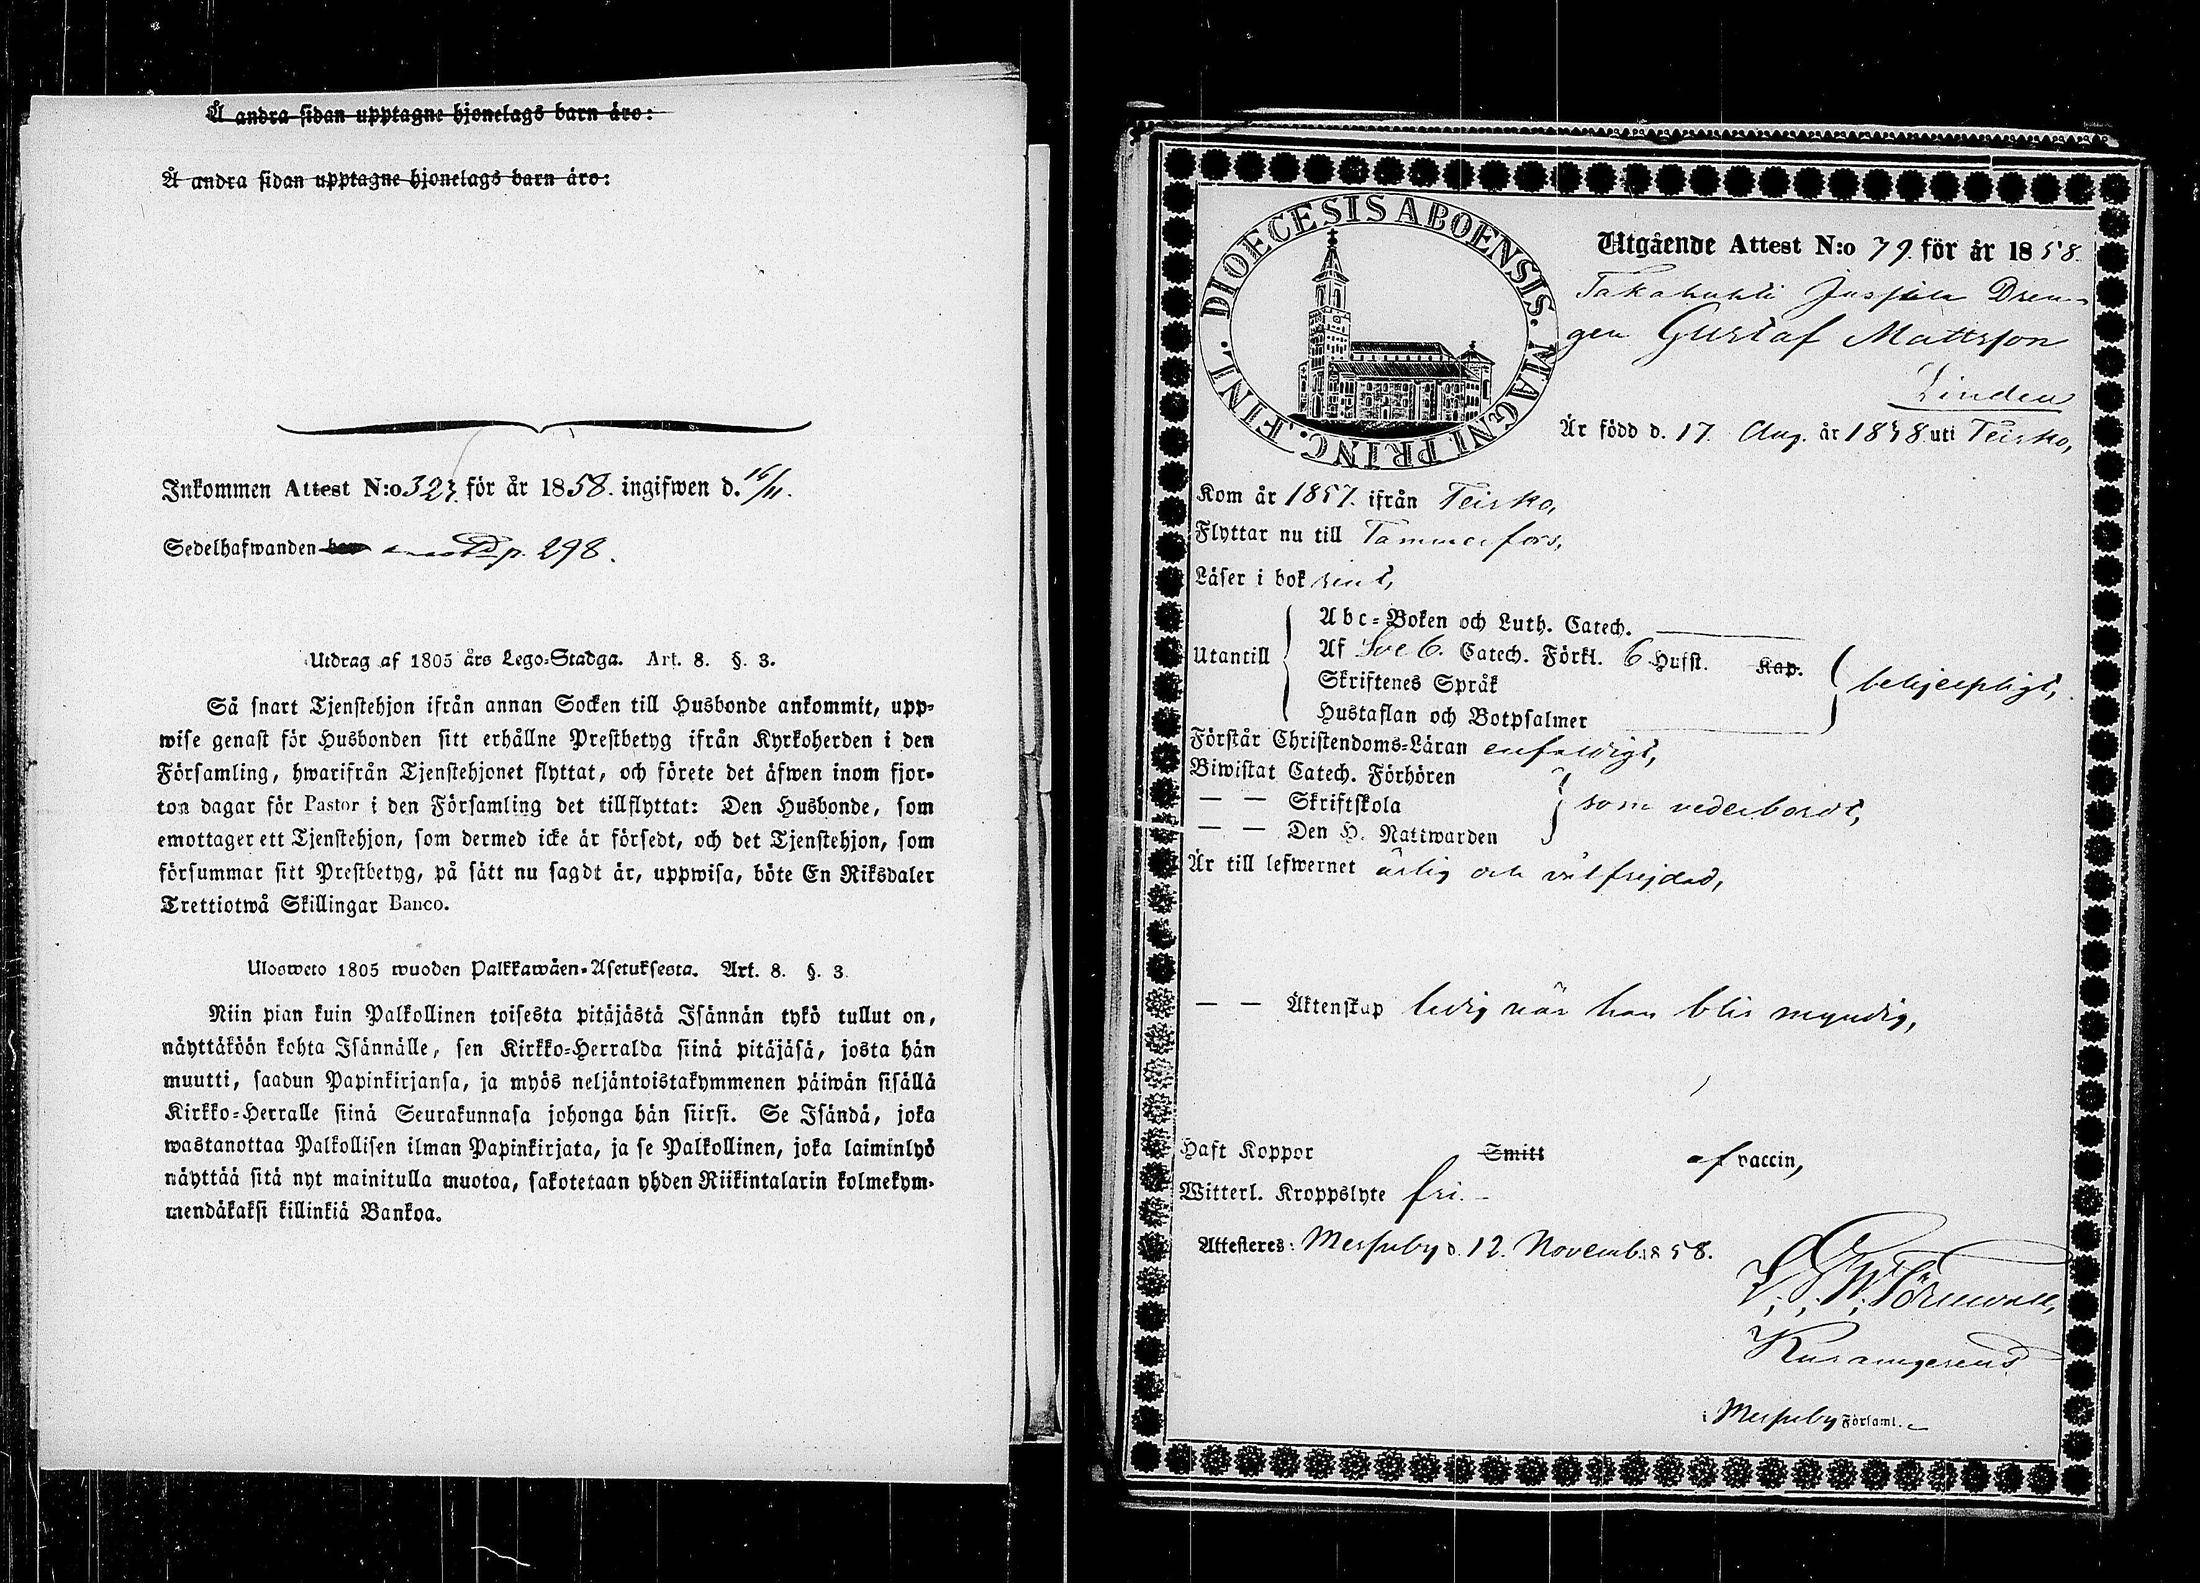 Å andra sidan upptagne hjonelags barn äro:
Å andra sidan upptagne hjonelags barn äro:
Inkommen Attest N:o 323. för år 1858. ingifwen d. 16/11.
Sedelhafwanden p. 298.
Utdrag af 1805 års Lego-Stadga. Art. 8. §. 3.
Så snart Tjenstehjon ifrån annan Socken till Husbonde ankommit, upp-
wise genast för Husbonden sitt erhållne Prestbetyg ifrån Kyrkoherden i den
Församling, hwarifrån Tjenstehjonet flyttat, och förete det äfwen inom fjor-
ton dagar för Pastor i den Församling det tillflyttat: Den Husbonde, som
emottager ett Tjenstehjon, som dermed icke är försedt, och det Tjenstehjon, som
försummar sitt Prestbetyg, på sätt nu sagdt är, uppwisa, böte En Riksdaler
Trettiotwå Skillingar Banco.
Ulosweto 1805 wuoden Palkkawäen-Asetuksesta. Art. 8. §. 3.
Niin pian kuin Palkollinen toisesta pitäjästä Isännän tykö tullut on,
näyttäköön kohta Isännälle, sen Kirkko-Herralda siinä pitäjäsä, josta hän
muutti, saadun Papinkirjansa, ja myös neljäntoistakymmenen päiwän sisällä
Kirkko-Herralle siinä Seurakunnasa johonga hän siirsi. Se Isändä, joka
wastanottaa Palkollisen ilman Papinkirjata, ja se Palkollinen, joka laiminlyö
näyttää sitä nyt mainitulla muotoa, sakotetaan yhden Riikintalarin kolmekym-
mendäkaksi killinkiä Bankoa.
DIOECESIS ABOENSIS. MAGNI PRINC. FINL.
Utgående Attest N:o 79. för år 1858.
Takahuhti Juspila Dren-
gen Gustaf Mattsson
Linden
Är född d. 17. Aug. år 1838 uti Teisko,
Kom år 1857. ifrån Teisko,
Flyttar nu till Tammerfors,
Läser i bok rent,
Abc-Boken och Luth. Catech.
Utantill Af Sveb. Catech. Förkl. 6 Hufst. Kap. behjelpligt,
Skriftenes Språk
Hustaflan och Botpsalmer
Förstår Christendoms-Läran enfaldigt,
Biwistat Catech. Förhören
— — Skriftskola som vederbordt,
— — Den H. Nattwarden
Är till lefwernet ärlig och välfrejdad,
— — Äktenskap ledig när han blir myndig,
Haft Koppor Smitt af vaccin,
Witterl. Kroppslyte fri.
Attesteres: Messuby d. 12. Novemb. 1858.
Törnwall,
i Messuby Församl.